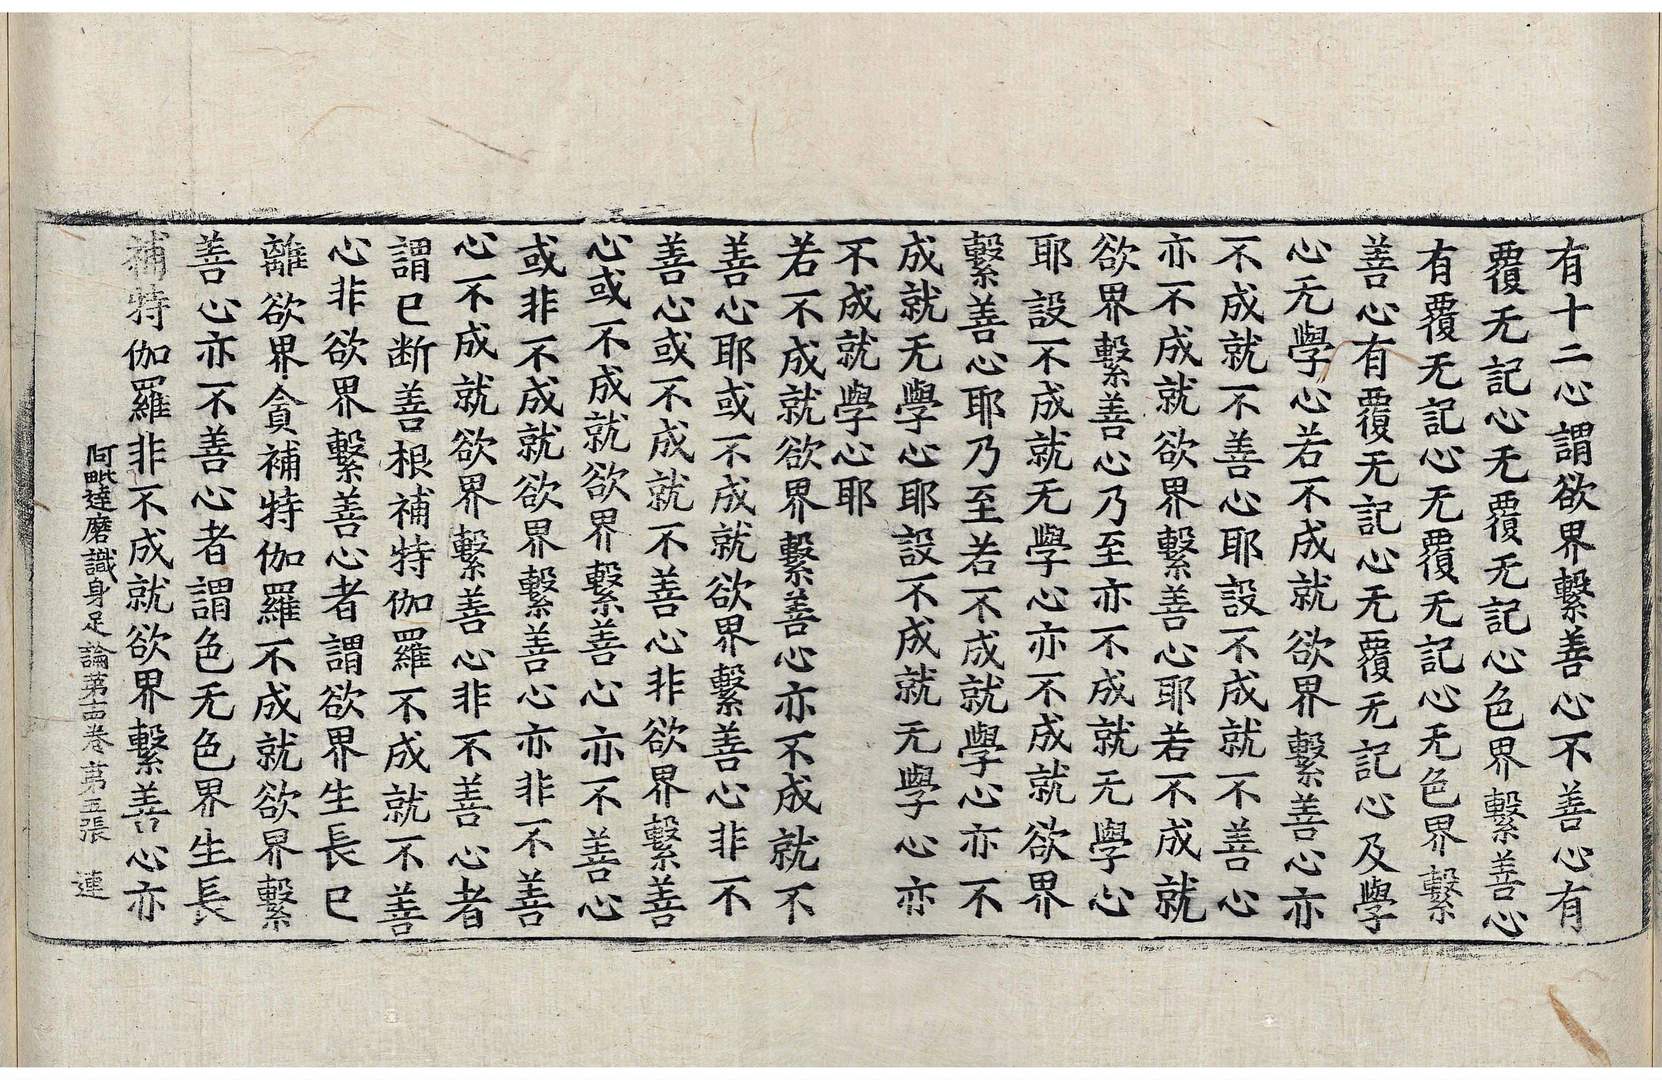 有十二心謂欲界繫善心不善心有
覆无記心无覆无記心色界繫善心
有覆无記心无覆无記心无色界繫
善心有覆无記心无覆无記心及學
心无學心若不成就欲界繫善心亦
不成就不善心耶設不成就不善心
亦不成就欲界繫善心耶若不成就
欲界繫善心乃至亦不成就无學心
耶設不成就无學心亦不成就欲界
繫善心耶乃至若不成就學心亦不
成就无學心耶設不成就无學心亦
不成就學心耶
若不成就欲界繫善心亦不成就不
善心耶或不成就欲界繫善心非不
善心或不成就不善心非欲界繫善
心或不成就欲界繫善心亦不善心
或非不成就欲界繫善心亦非不善
心不成就欲界繫善心非不善心者
謂已断善根補特伽羅不成就不善
心非欲界繫善心者謂欲界生長已
離欲界貪補特伽羅不成就欲界繫
善心亦不善心者謂色无色界生長
補特伽羅非不成就欲界繫善心亦
阿毗達磨識身足論第十四卷 第五張 連